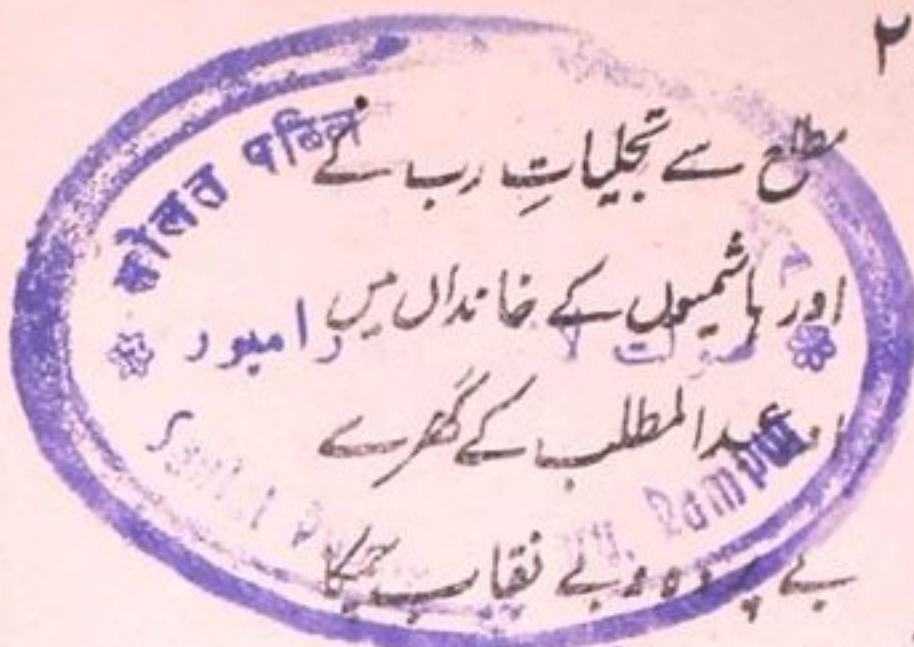 ۲
مطلع سے تجلیاتِ رب کے
اور ہاشمیوں کے خانداں میں
عبدالمطلب کے گھر سے
بے پردہ و بے نقاب چمکا
सौलत पब्लि
رامپور
Rampur